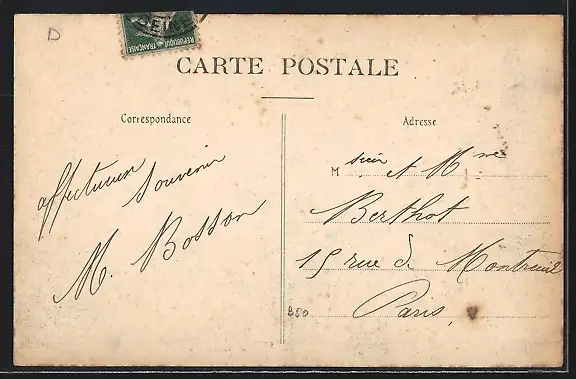 D
RÉPUBLIQUE FRANÇAISE
CARTE POSTALE
Correspondance
affectueux
souvenir
M. Bosson
Adresse
Msieur et Mme
Berthot
15 rue de Montreuil
Paris
B50